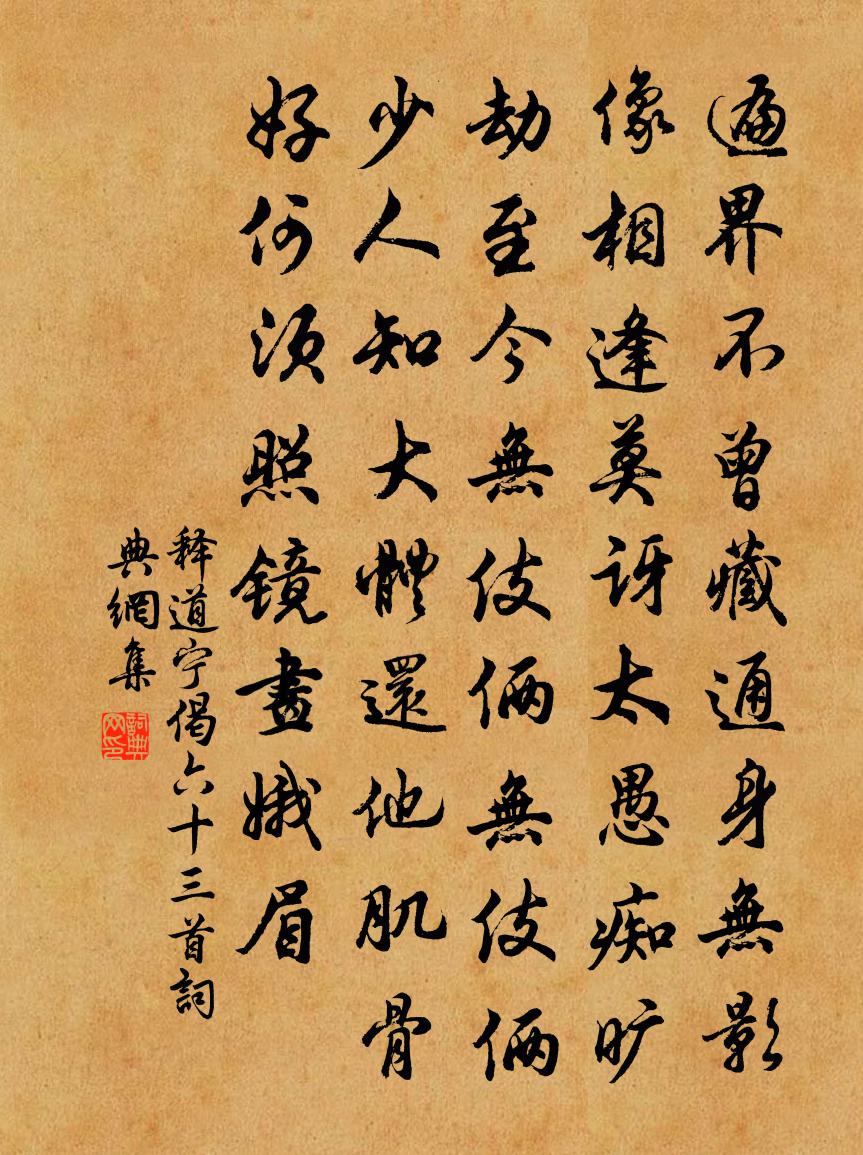 遍界不曾藏通身無影
像相逢莫訝太愚痴旷
劫至今無伎倆無伎倆
少人知大體還他肌骨
好何须照镜畫娥眉
释道宁偈六十三首詞
典網集
詞典网印